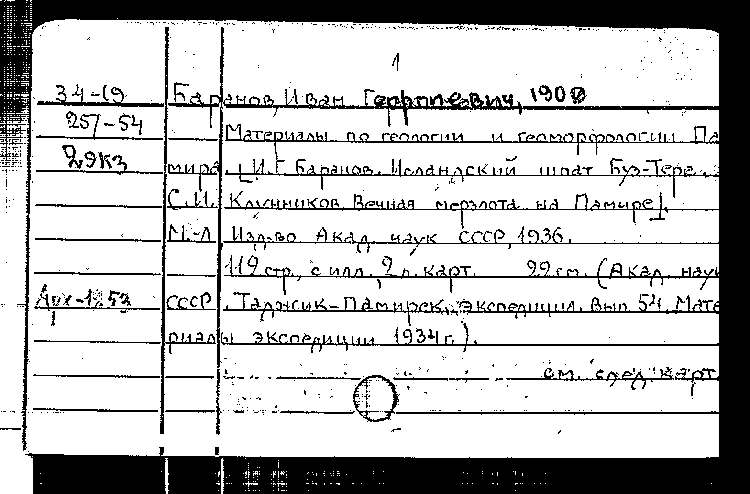 1
34-19 Баранов, Иван Георгиевич, 1900
257-54 Материалы по геологии и геоморфологии Па
29к3 мира. [И.Г. Баранов. Исландский шпат Буз-Тере.
С.И. Клунников. Вечная мерзлота на Памире].
М.-Л. Изд-во Акад. наук СССР, 1936.
112 стр., с илл., 2 л. карт. 22 см. (Акад. наук
СССР. Таджик-Памирск. экспедиция. Вып. 54. Мате
риалы экспедиции 1934 г.).
см. след. карт.